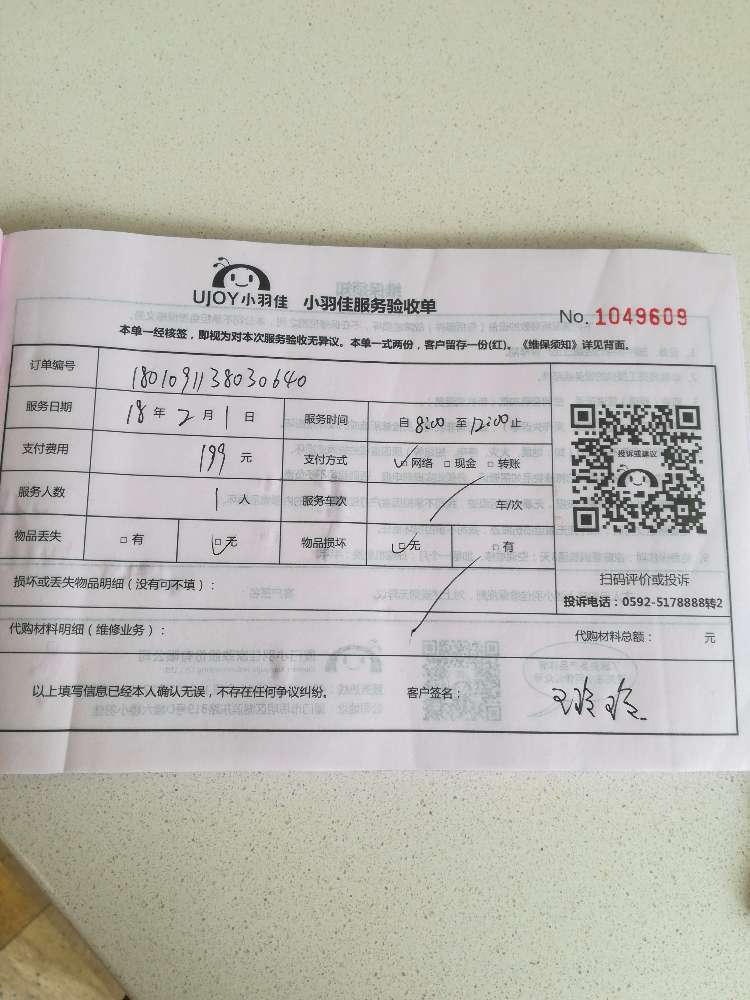 UJOY小羽佳 小羽佳服务验收单
No. 1049609
本单一经核签，即视为对本次服务验收无异议。本单一式两份，客户留存一份(红)。《维保须知》详见背面。
订单编号 1801091138030640
服务日期 18年2月1日 服务时间 自8:00至12:00止
支付费用 199元 支付方式 ☑网络 □现金 □转账
服务人数 1人 服务车次 车/次
物品丢失 □有 ☑无 物品损坏 ☑无 □有
投诉或建议
扫码评价或投诉
投诉电话：0592-5178888转2
损坏或丢失物品明细（没有可不填）：
代购材料明细（维修业务）： 代购材料总额： 元
以上填写信息已经本人确认无误，不存在任何争议纠纷。 客户签名： 王玲玲